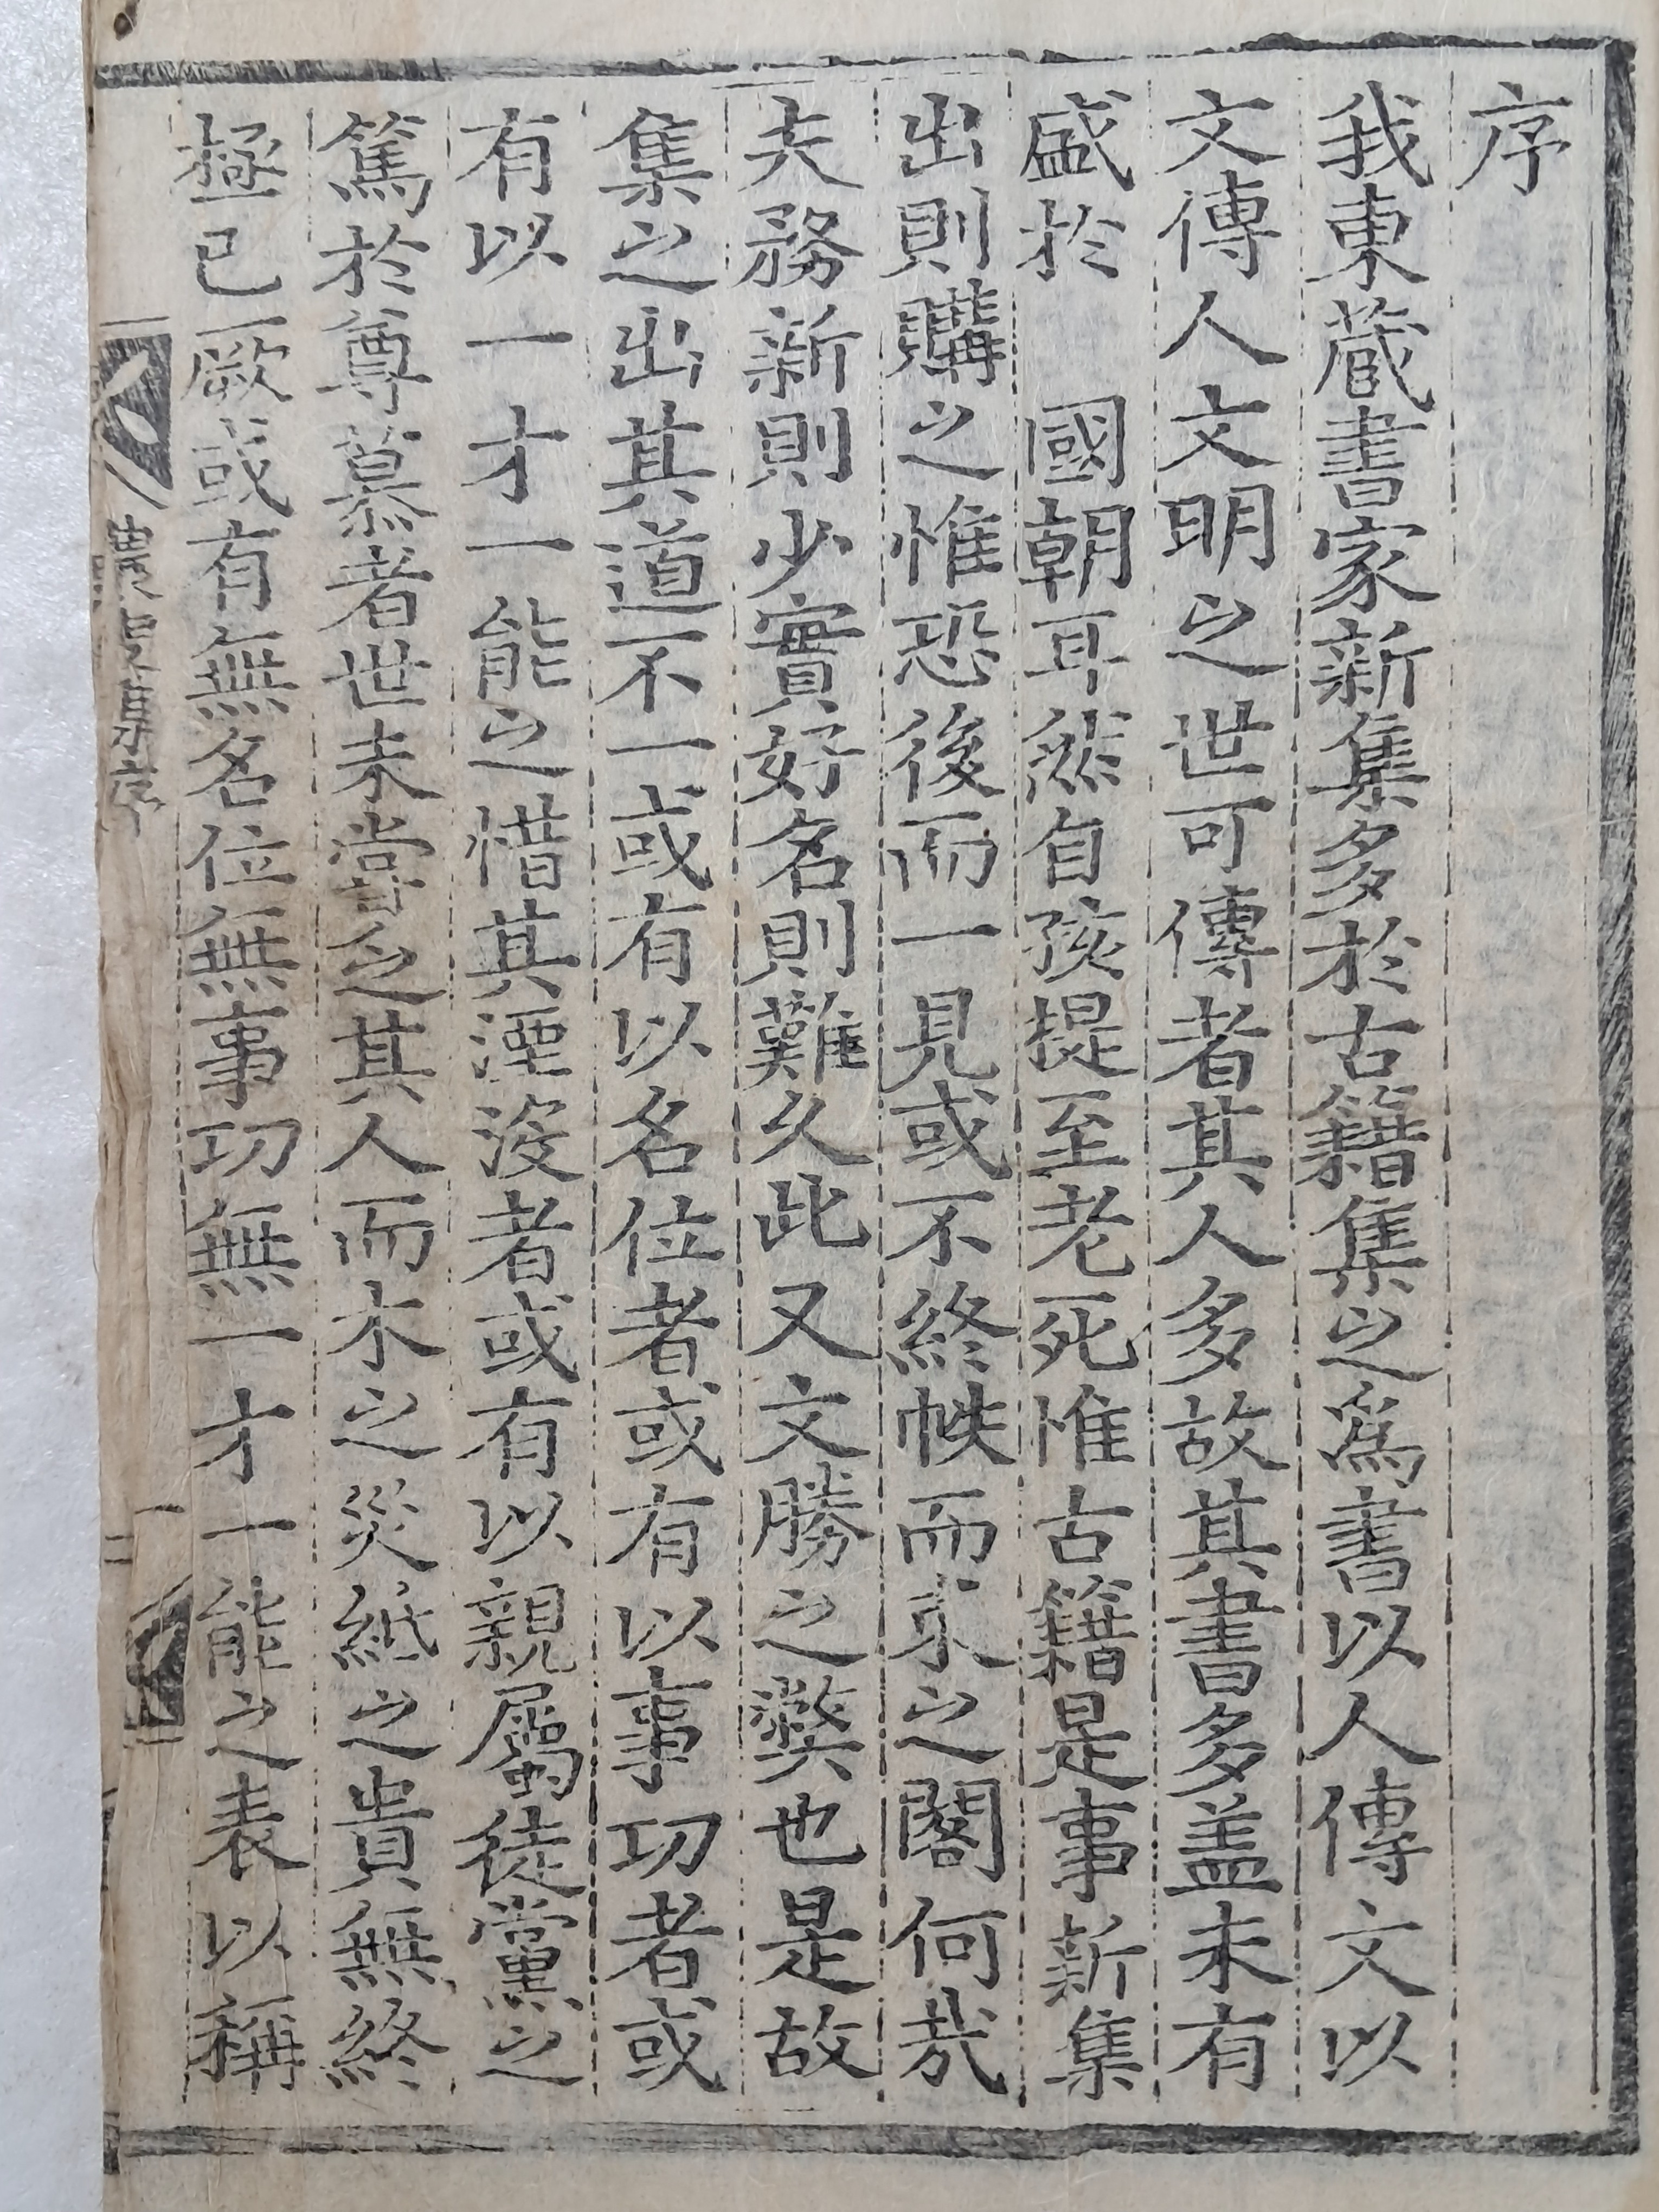 序
我東蔵書家新集多於古籍集之爲書以人傳文以
文傳人文明之世可傳者其人多故其書多盖未有
盛於　國朝耳然自孩提至老死惟古籍是事新集
出則購之惟恐後而一見或不終帙而束之閣何㢤
夫務新則少實好名則難久此又文勝之獘也是故
集之出其道不一或有以名位者或有以事功者或
有以一才一能之惜其湮没者或有以親屬徒黨之
篤於尊慕者世未嘗乏其人而木之災紙之貴無終
極已厥或有無名位無事功無一才一能之表以稱
集序
一